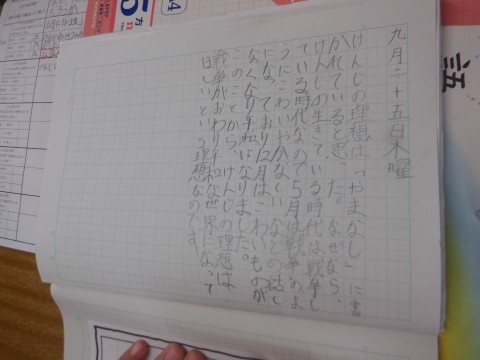 九月二十五日木曜
けんじの理想は「やまなし」に書
かれていると思った。なぜなら、
けんじの生きている時代は戦争し
ている時代なので5月は戦争のよ
うにこわいやかなしいなどの話し
になっており12月はこわいものが
なくなり平和になりました。
このことから、けんじの理想は
戦争がおわり平和な世界になって
ほしいという理想なのです。
語